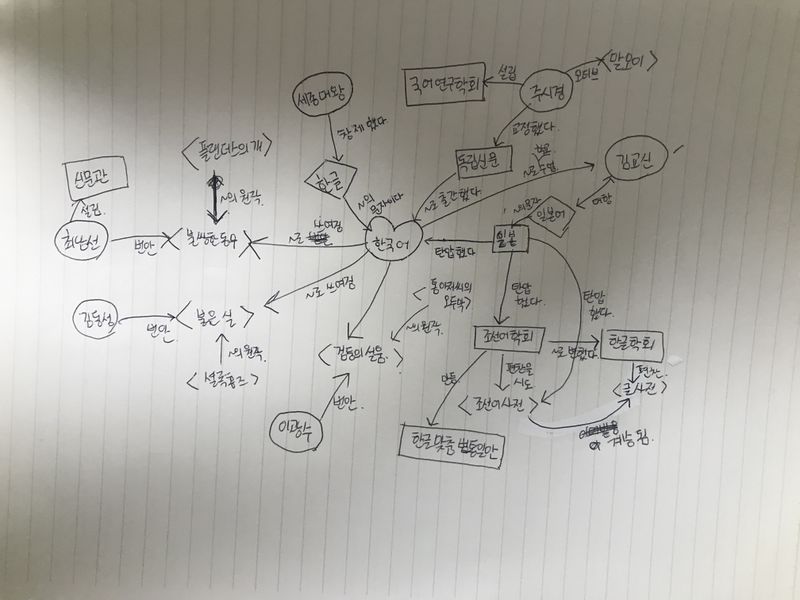 세종대왕
창제했다
한글
~의
문자이다
국어연구학회
설립
주시경
모티브
<말모이>
교정했다.
독립신문
~로 출간했다
~로 수업
김교신
여함
일본어
한국어
신문관
설립
최남선
번안
<플랜더스의 개>
~의 원작.
불쌍한 동무
~로
쓰여짐
김동성
번안
<붉은 실>
~로 쓰여짐
~의 원작
<셜록홈즈>
<검둥의 설움>
<톰 아저씨의
오두막>
~의 원작.
이광수
번안.
일본
탄압했다
탄압
했다.
탄압
했다.
조선어학회
~로 변했다.
한글학회
편찬.
<큰사전>
편찬을
시도
<조선어사전>
계승됨.
만듦
한글맞춤법통일안